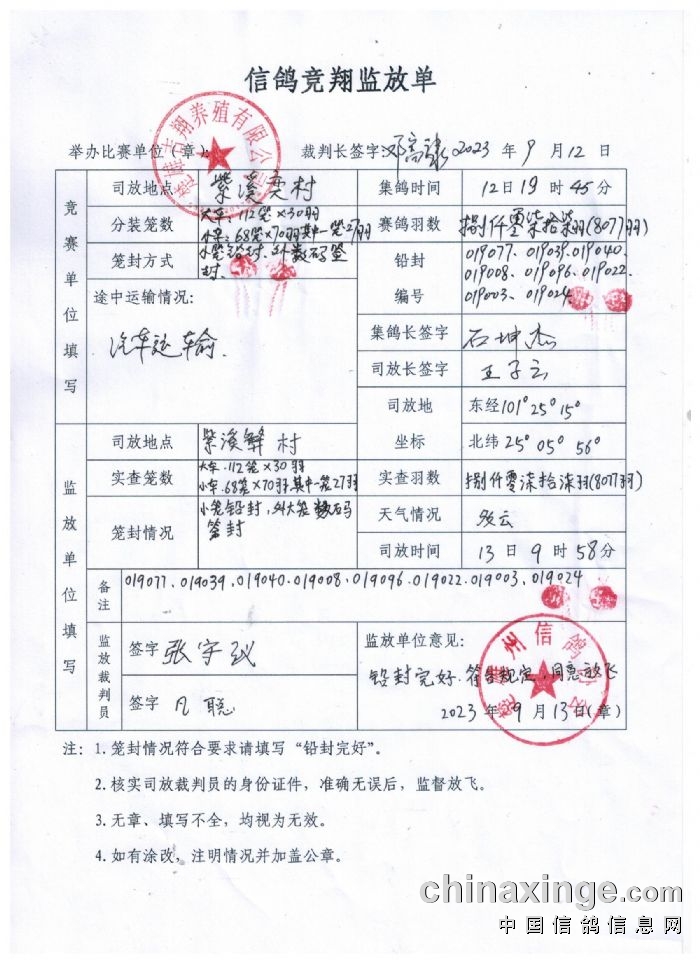 信鸽竞翔监放单
举办比赛单位（章）： 裁判长签字: 2023 年 9 月 12 日
翔养殖有限公
竞赛单位填写
司放地点 紫溪 村 集鸽时间 12日19 时 45分
分装笼数 大车：112笼×30羽 小车：68笼×70羽其中一笼27羽 赛鸽羽数 捌仟零柒拾柒羽(8077羽)
笼封方式 小笼铅封、外 数码签封 铅封编号 019077、019039、019040、
019008、019096、019022、
019003、019024
途中运输情况:
汽车运输、
集鸽长签字 石坤杰
司放长签字 王子云
司放地坐标 东经101°25°15°
北纬25°05°56°
监放单位填写
司放地点 紫溪 村
实查笼数 大车.112笼×30羽
小车.68笼×70羽其中一笼27羽
实查羽数 捌仟零柒拾柒羽(8077羽)
笼封情况 小笼铅封，外大笼数码
签封
天气情况 多云
司放时间 13 日 9 时 58分
备注 019077、019039、019040、019008、019096、019022、019003、019024
监放裁判员
签字 张宇
签字 凡聪
监放单位意见:
铅封完好.符合规定，同意放飞
州信鸽
2023 年 9 月 13日（章）
注： 1. 笼封情况符合要求请填写“铅封完好”。
2. 核实司放裁判员的身份证件，准确无误后，监督放飞。
3. 无章、填写不全，均视为无效。
4. 如有涂改，注明情况并加盖公章。
chinaxinge.com
中国信鸽信息网